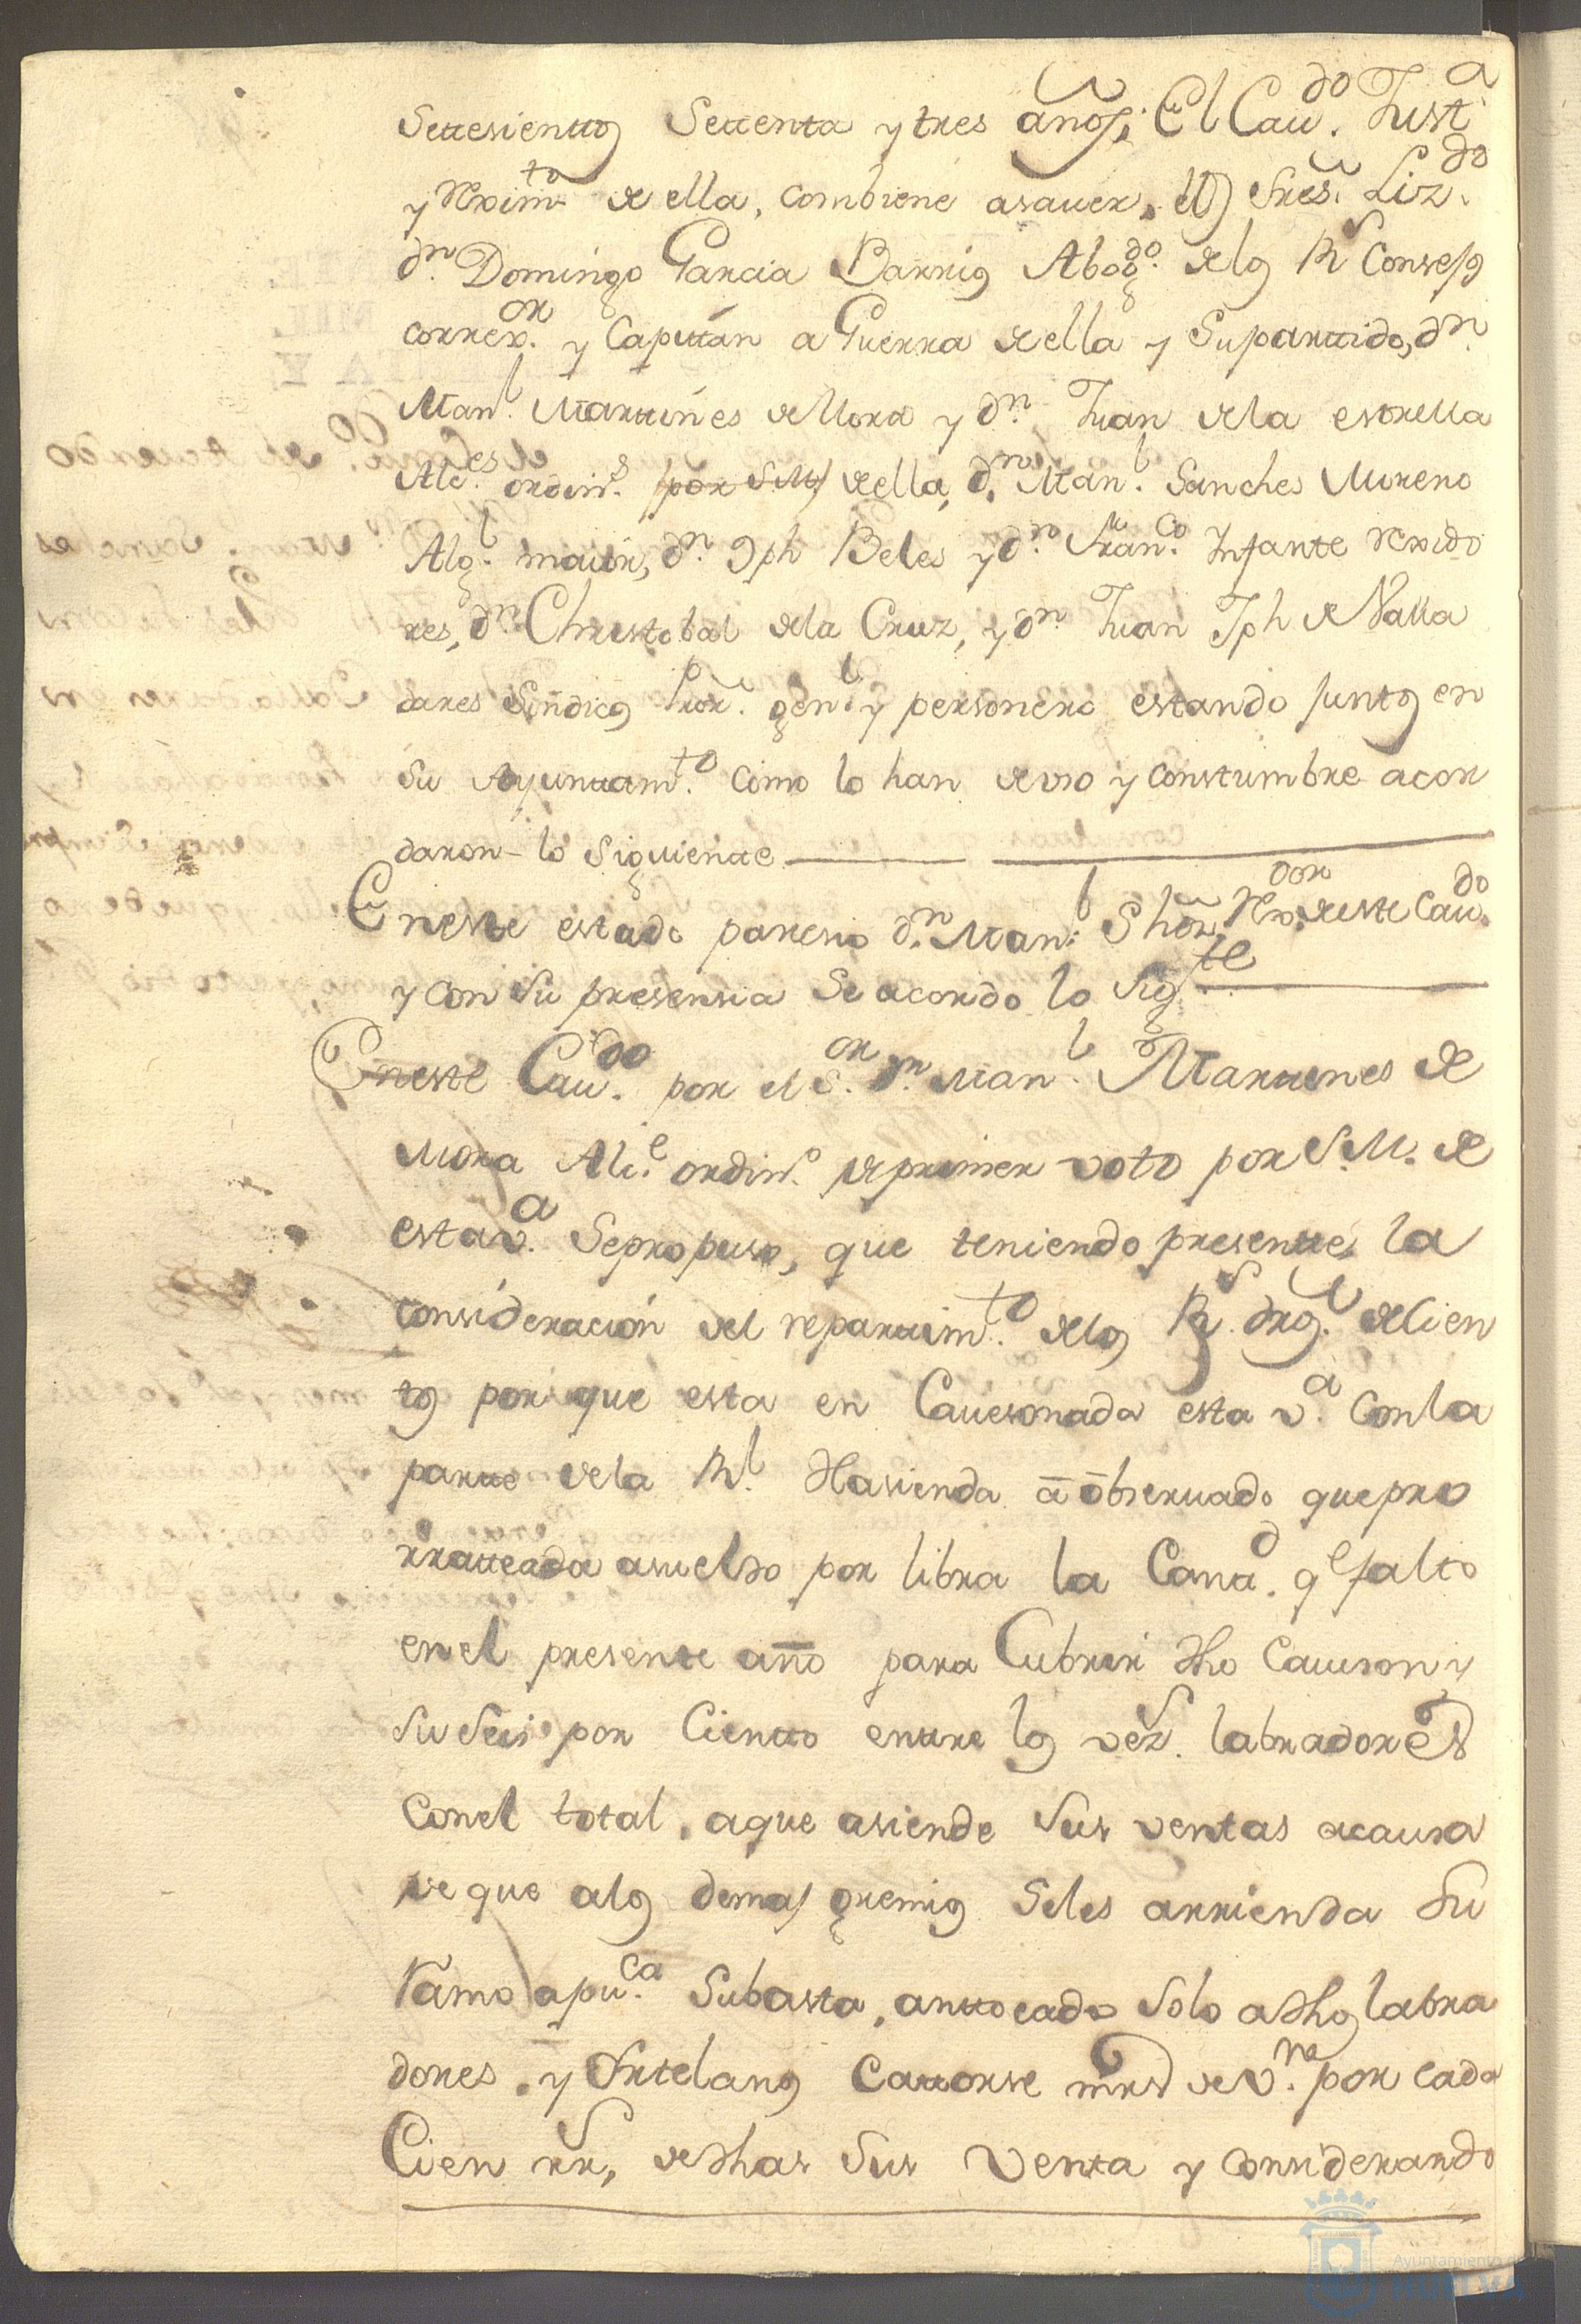 Settesienttos Settenta y tres años; El Cavdo. Justa
y Reximto de ella, combiene asaver, los Sres. Lizdo.
dn. Domingo Garcia Barrios Abogdo. delos Rs Consejos
correxor. y Capittan a Guerra de ella y Suparttido, dn.
Manl. Marttines de Mora y dn. Juan dela estrella
Alces. ordins. por S.M. de ella, dn. Manl. Sanches Moreno
Algl. maior, dn. Jph Beles y dn. Franco. Infante Rexido
res, dn. Christobal dela Cruz, y dn. Juan Jph de Valla
dares Sindicos Pror. genl. y personero estando juntos en
su Ayunttamto. como lo han de uso y constumbre acor
daron lo siguientte
En este estado paresio dn. Manl. Shor. Rexdor de este Cavdo.
y con su presensia se acordo lo Sigte
En este Cavdo. por el Sor. dn. Manl. Marttines de
Mora Alce. ordino. de primer voto por S.M. de
esta va. Sepropuso, que teniendo presentte, la
consideración del reparttimto. delos Rs. dros. de Cien
tos por que esta en Cavesonada esta va. con la
partte de la Rl. Hasienda a observado que pro
rratteada asueldo por libra la Cantd. qe falto
en el presente año para Cubrir dho Caveson y
su seis por Cientto enttre los vezs. labradores
con el total, a que asiende sus ventas acausa
de que a los demas gremios seles arrienda su
ramo a puca. Subasta, anttocado solo a dhos labra
dores, y Ortelanos Cattorse mrs de vn. por cada
Cien rrs, de dhas sus venta y considerando
Ayuntamiento de
HUELVA